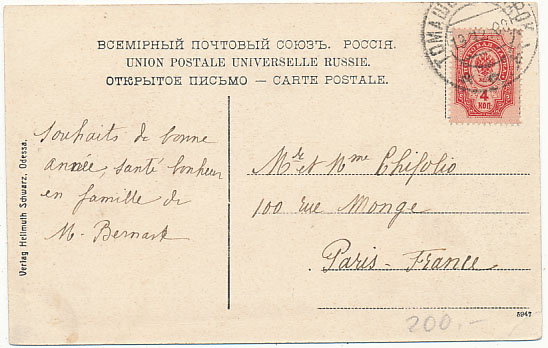 ВСЕМІРНЫЙ ПОЧТОВЫЙ СОЮЗЪ. РОССІЯ.
UNION POSTALE UNIVERSELLE RUSSIE.
ОТКРЫТОЕ ПИСЬМО — CARTE POSTALE.
4
КОП
Souhaits de bonne
année, santé bonheur
en famille de
M. Bernard
Mr et Mme Chifolio
100 rue Monge
Paris - France
Verlag Hellmuth Schwarz, Odessa.
5947
200.-